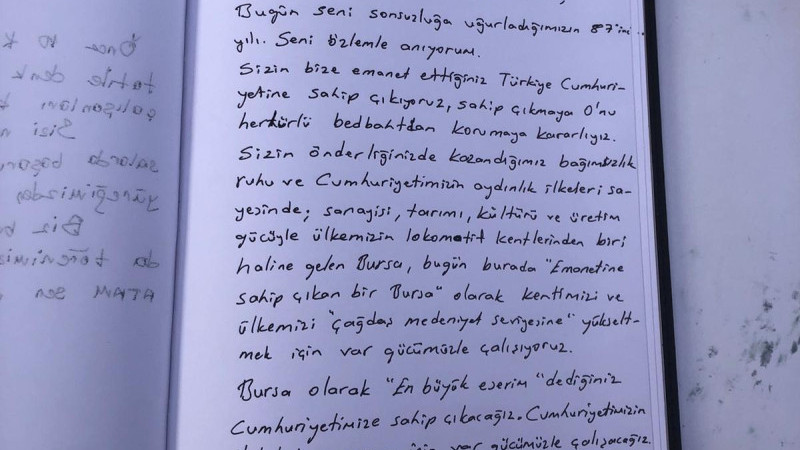 Bugün seni sonsuzluğa uğurladığımızın 87'inci
yılı. Seni özlemle anıyorum.
Sizin bize emanet ettiğiniz Türkiye Cumhuri-
yetine sahip çıkıyoruz, sahip çıkmaya O'nu
hertürlü bedbahtdan korumaya kararlıyız.
Sizin önderliğinizde kazandığımız bağımsızlık
ruhu ve Cumhuriyetimizin aydınlık ilkeleri sa-
yesinde; sanayisi, tarımı, kültürü ve üretim
gücüyle ülkemizin lokomotif kentlerinden biri
haline gelen Bursa, bugün burada "Emanetine
sahip çıkan bir Bursa" olarak kentimizi ve
ülkemizi "çağdaş medeniyet seviyesine" yükselt-
mek için var gücümüzle çalışıyoruz.
Bursa olarak "En büyük eserim" dediğiniz
Cumhuriyetimize sahip çıkacağız. Cumhuriyetimizin
için var gücümüzle çalışacağız.